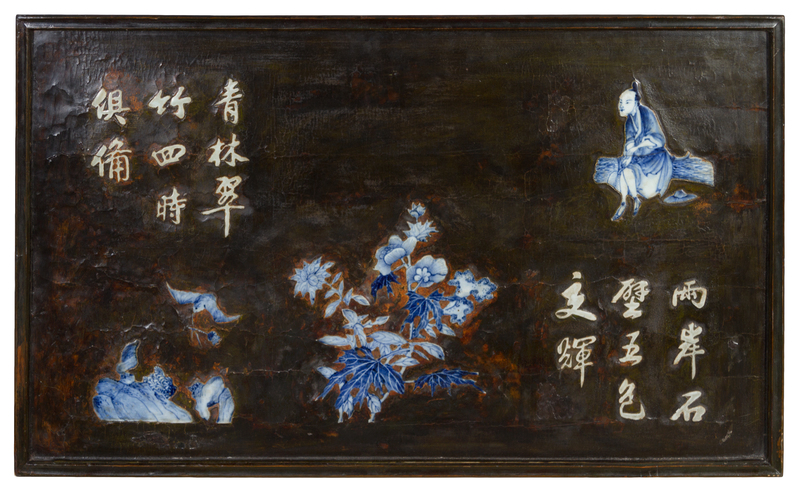 兩岸石
壁五色
交輝
青林翠
竹四時
俱備